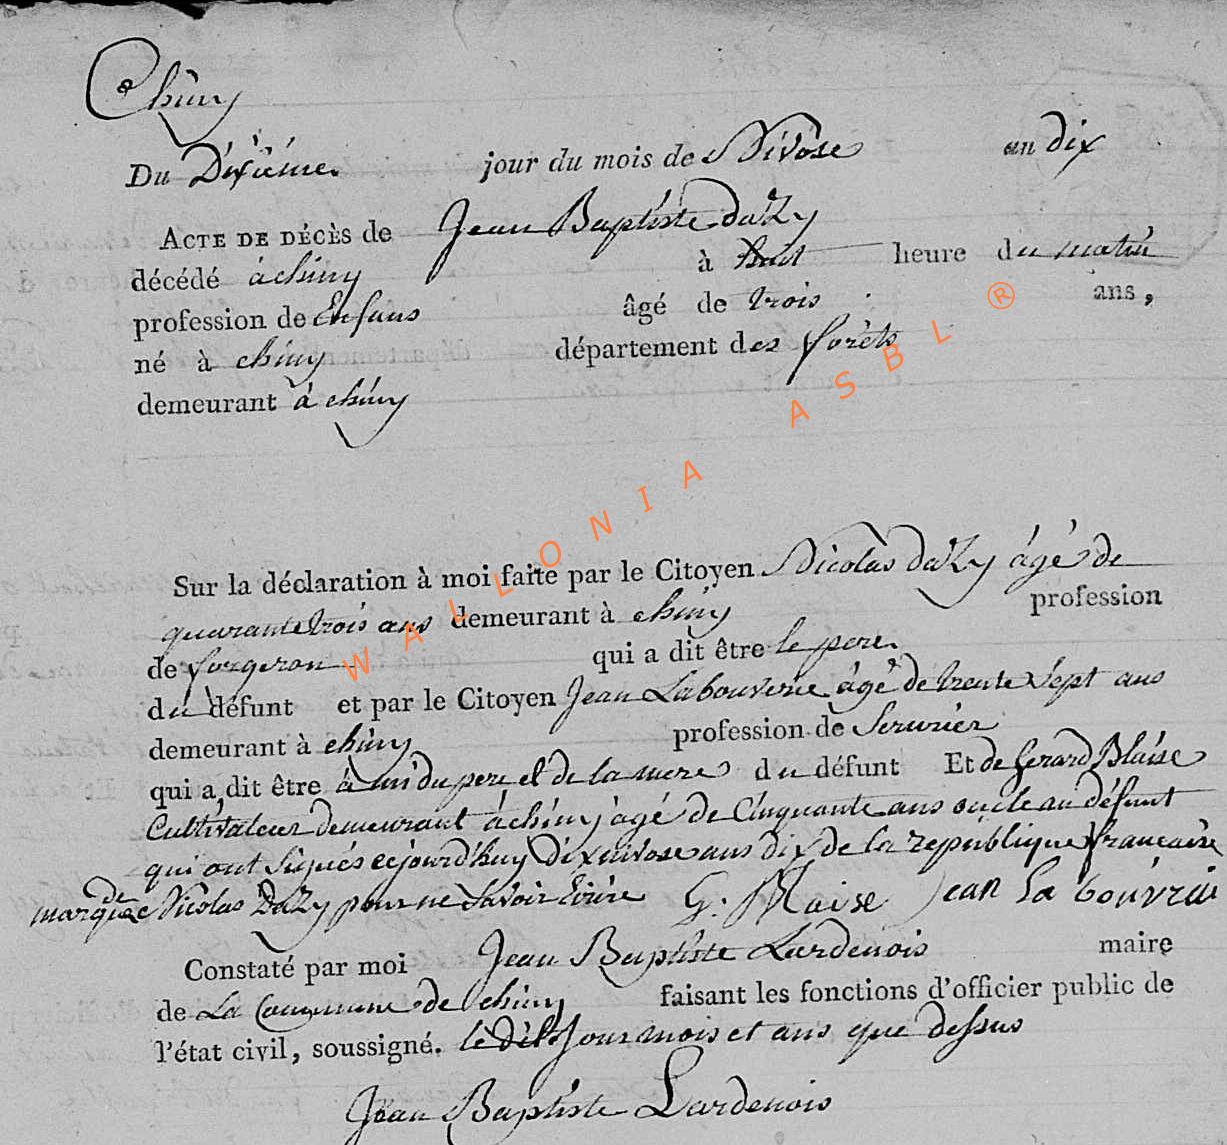 Chiny
Du Dixiéme jour du mois de Nivôse an dix
ACTE DE DÉCÈS de Jean Baptiste daZy
décédé à chiny à huit heure du matin
profession de Enfans âgé de trois ans,
né à chiny département des forêts
demeurant à chiny
Sur la déclaration à moi faite par le Citoyen Nicolas daZy âgé de
quarante trois ans demeurant à chiny profession
de forgeron qui a dit être le pere
du défunt et par le Citoyen Jean Labouverie âgé de trente sept ans
demeurant à chiny profession de Serurier
qui a dit être ami du pere et de la mere du défunt Et de Gerard Blaise
Cultivateur demeurant à chiny âgé de Cinquante ans oncle au défunt
qui ont signés cejourd'huy dix nivose ans dix de la republique francaise
marque de Nicolas DaZy pour ne savoir Ecrire G. Blaise Jean la bouvrie
Constaté par moi Jean Baptiste Lardenois maire
de La Commune de chiny faisant les fonctions d'officier public de
l'état civil, soussigné. le dit Jour mois et ans que dessus
Jean Baptiste Lardenois
WALLONIA ASBL ®